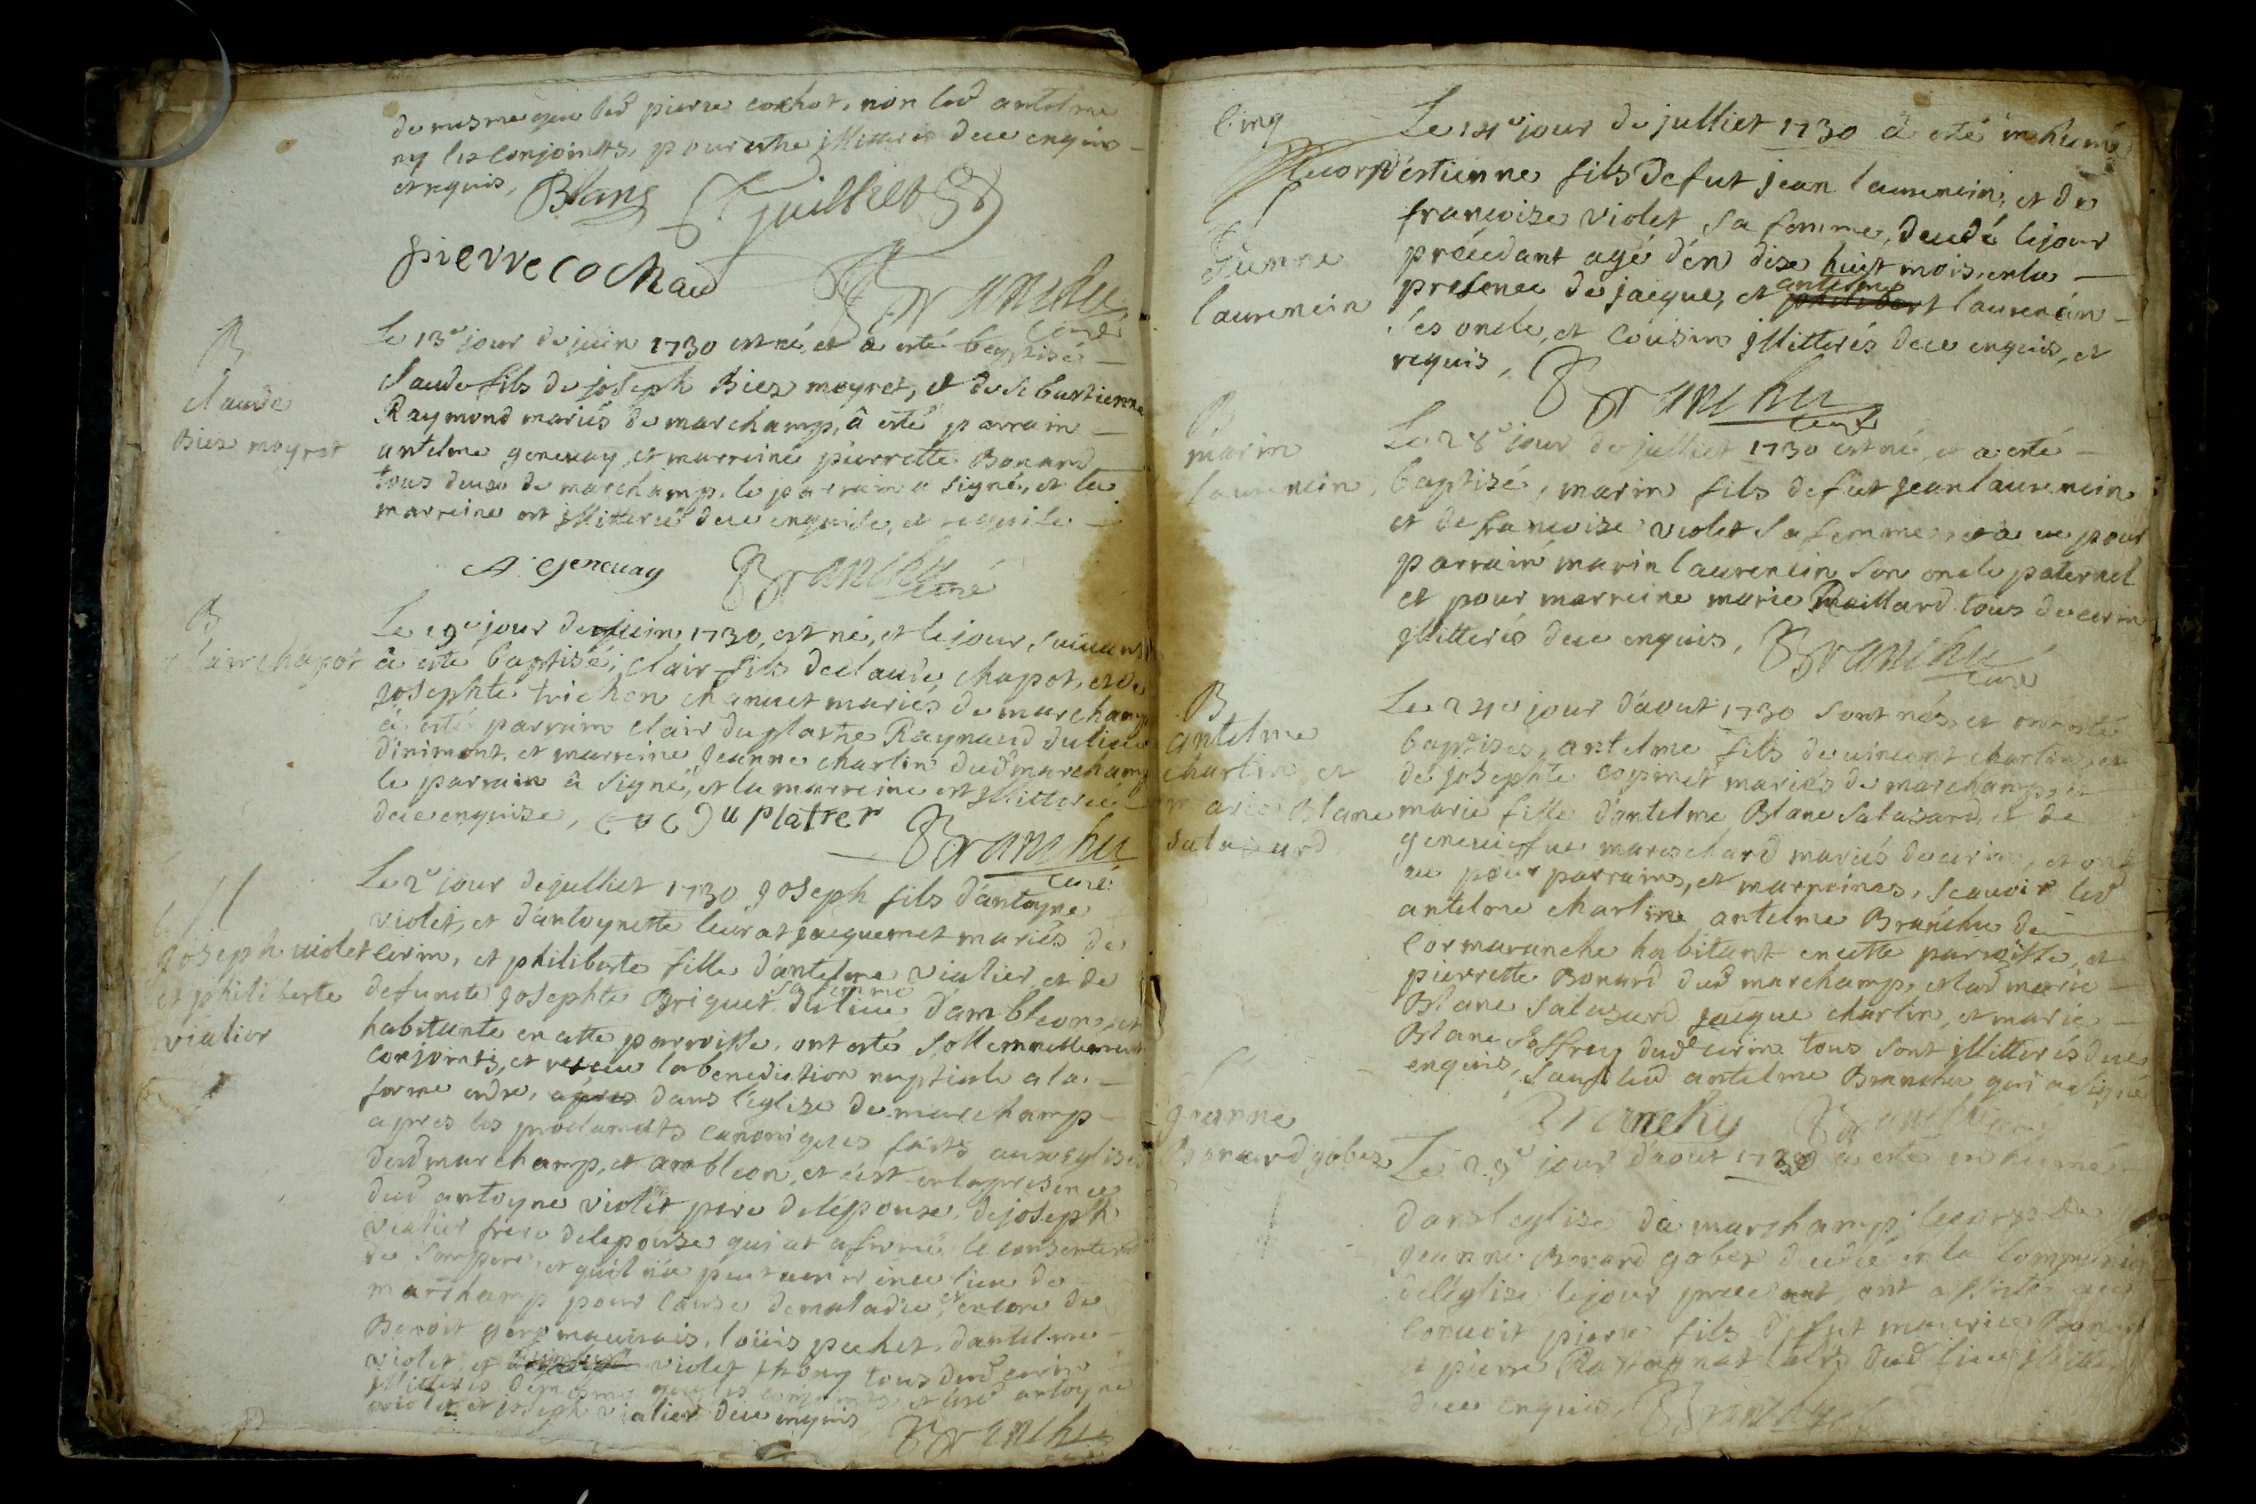 de mesme que led pierre cochot, non led antelme
ny les conjoints, pour estre illitterés dece enquis
et requis, Blanc Guilliet
pierre cochad
Branchu
curé
B
claude
Biez moyret
Le 13e jour de juin 1730 est né, et a esté baptisé
claude fils de joseph Biez moyret, et de sebastienne
Raymond mariés de marchamp, â esté parrain
antelme genevay, et marreine pierrette Bonard
tous deux de marchamp, le parrain a signé, et la
marreine est illitteree dece enquise, et requise
A. Genevay Branchu
curé
B
clair chapot
Le 19e jour de juin 1730, est né, et le jour suivant
â esté baptisé, clair fils de claude chapot, et de
josephte trichon chanuet mariés de marchamp
â esté parrain clair duplastre Raynaud du lieu
d'inimont, et marreine jeanne charlin dud marchamp
le parrain â signé, et la marreine est illitteree
dece enquise, du Platrer Branchu
curé
joseph violet
et philiberte
vialier
Le 2e jour de julliet 1730 joseph fils d'antoyne
violet, et d'antoynette leurat jacquemet mariés de
cerin, et philiberte fille d'antelme vialier, et de
defuncte josephte Briguet sa femme du lieu d'ambleon, et
habitante en cette parroisse, ont esté sollemnellement
conjoints, et receu la benediction nuptiale a la
forme ordre, dans l'eglise de marchamp
apres les proclamats canoniques faits aux eglises
dud marchamp, et ambleon, et c'est en la presence
dud antoyne violet pere de l'epouse, de joseph
vialier frere de l'epouse qui at afirmé le consentement
de son pere, et qu'il n'a peut venir en ce lieu de
marchamp pour cause de maladie, et encore de
Benoit gros mauvais, loüis pechet, d'antelme
violet, et violet thony tous dud cerin
illitterés de mesme que les conjoints, et led antoyne
violet, et joseph vialier dece enquis Branchu
cinq
Etienne
laurencin
Le 14e jour de julliet 1730 a esté inhumé
le corp d'estienne fils de fut jean laurencin, et de
francoise violet sa femme, decedé le jour
précedant agé d'en dix huit mois, en la
presence de jacque, et antelme laurencin
ses oncle, et cousin illitterés dece enquis, et
requis, Branchu
curé
B
marin
laurencin
Le 28e jour de julliet 1730 est né, et a esté
baptisé, marin fils de fut jean laurencin
et de francoise violet sa femme, et a eu pour
parrain marin laurencin son oncle paternel
et pour marreine marie Maillard tous de cerin
illitterés dece enquis, Branchu
curé
B
antelme
charlin, et
marie Blanc
salazard
Le 24e jour d'aout 1730 sont nés, et ont esté
baptisés, antelme fils de vincent charlin, et
de josephte copinet mariés de marchamp, et
marie fille d'antelme Blanc salazard, et de
genevieffve mareschard mariés de cerin, et ont
eu pour parrains, et marreines, scavoir led
antelme charlin antelme Branchu de
cormaranche habitant en cette parroisse, et
pierrette Bonard dud marchamp, et lad marie
Blanc salazard jacque charlin, et marie
Blanc Joffrey dud cerin tous sont illitterés dece
enquis, sauf led antelme Branchu qui a signé
Branchy Branchu
jeanne
Bonard gobez
Le 29e jour d'aout 1730 a esté inhumé
dans l'eglise de marchamp le corps de
jeanne Bonard gobez decedé en la
de l'eglise le jour precedant, ont assistés au
convoit pierre fils de fut maurice Bonard
et pierre dud lieu
dece enquis, Branchu